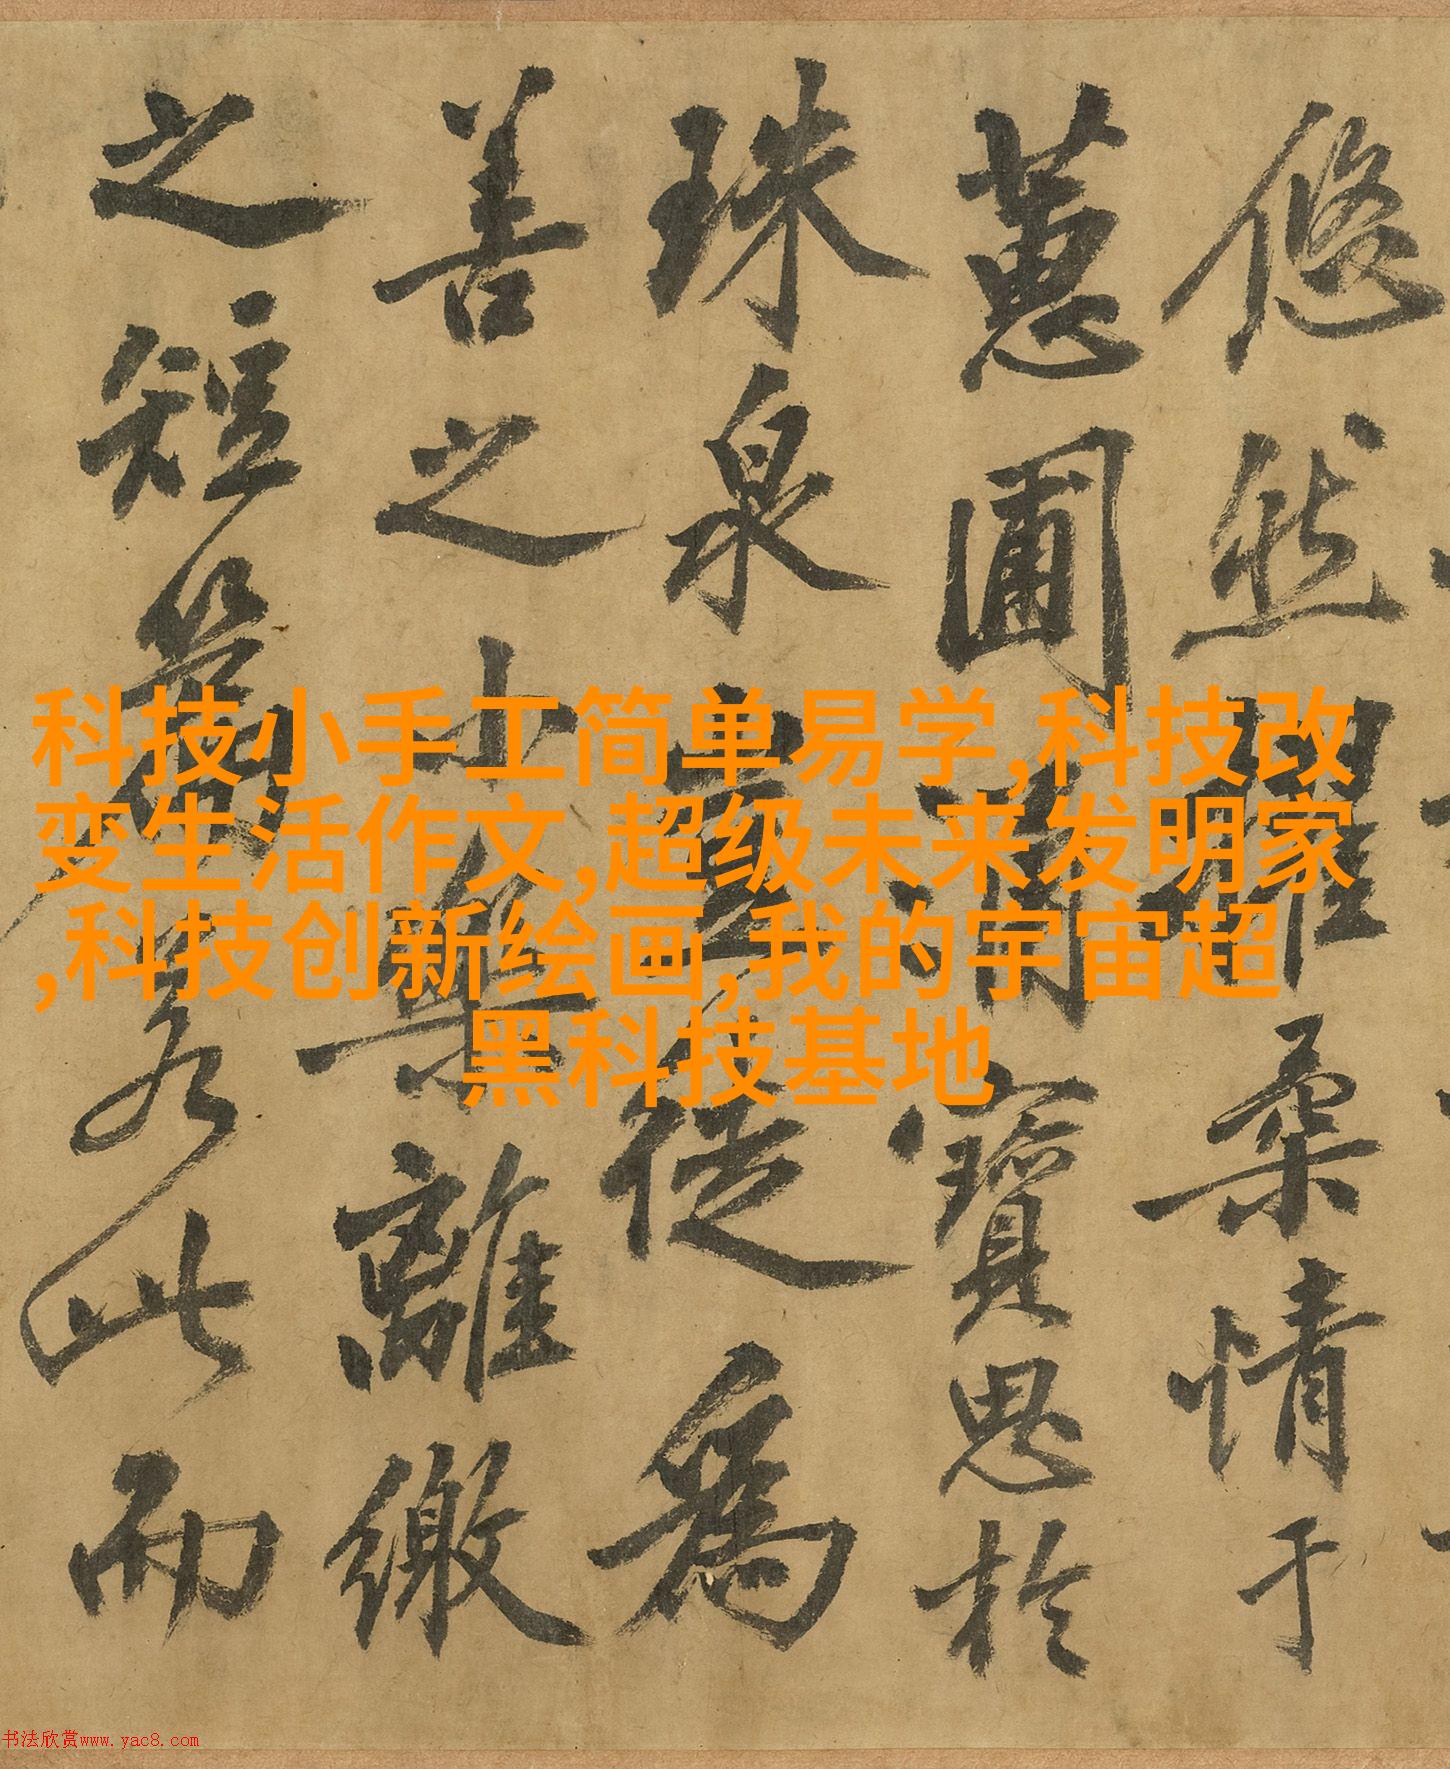 悠然柔情于
蕙圃寶思於
珠泉豈徒為
善之小離繳
之短篇若此而
科技小手工简单易学,科技改
变生活作文,超级未来发明家
,科技创新绘画,我的宇宙超
黑科技基地
书法欣赏www.yac8.com